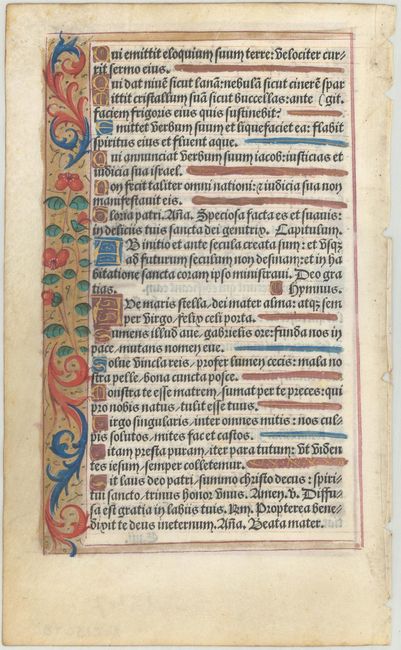 Qui emittit eloquium suum terre: velociter cur-
rit sermo eius.
Qui dat nivē sicut lanā: nebulā sicut cinerē spar
Mittit cristallum suū sicut buccellas: ante (git.
faciem frigoris eius quis sustinebit?
Emittet verbum suum et liquefaciet ea: flabit
spiritus eius et fluent aque.
Qui annunciat verbum suum iacob: iusticias et
iudicia sua israel.
Non fecit taliter omni nationi: ⁊ iudicia sua non
manifestavit eis.
Gloria patri. Aña. Speciosa facta es et suavis:
in deliciis tuis sancta dei genitrix. Capitulum.
AB initio et ante secula creata sum: et vsq;
ad futurum seculum non desinam: et in ha
bitatione sancta coram ipso ministravi. Deo gra
tias. Hymnus.
AVe maris stella, dei mater alma: atq; sem
per virgo, felix celi porta.
Sumens illud ave, gabrielis ore: funda nos in
pace, mutans nomen eve.
Solve vincla reis, profer lumen cecis: mala no
stra pelle, bona cuncta posce.
Monstra te esse matrem, sumat per te preces: qui
pro nobis natus, tulit esse tuus.
Virgo singularis, inter omnes mitis: nos cul-
pis solutos, mites fac et castos.
Vitam presta puram, iter para tutum: vt viden
tes iesum, semper colletemur.
Sit laus deo patri, summo christo decus: spiri-
tui sancto, trinus honor vnus. Amen. v. Diffu-
sa est gratia in labiis tuis. Rm. Propterea bene-
dixit te deus ineternum. Aña. Beata mater.